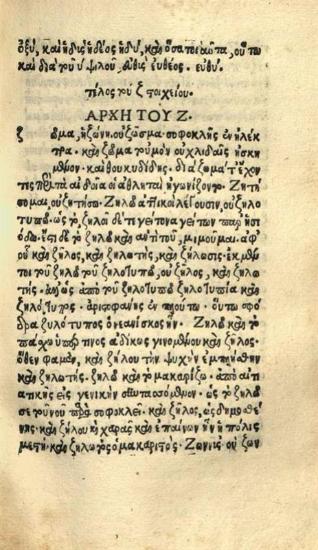 ὀξύ, καὶ ἡδὺς ἡδέος ἡδύ, καὶ ὅσα τοιαῦτα, οὕτω
καὶ διὰ τοῦ υ ψιλοῦ. εὐθὺς εὐθέος. εὐθύ.
τέλος τοῦ ε στοιχείου.
ΑΡΧΗ ΤΟΥ Ζ.
ζῶμα, ἡ ζώνη. οὐ ζῶσμα. σοφοκλῆς ἐν ἠλέκ
τρα. καὶ ζῶμα τοῦμὸν οὐ χλιδαῖς ἠσκη
μένον. καὶ θουκυδίδης. διαζώματ' ἔχον
τες περὶ τὰ αἰδοῖα οἱ ἀθληταὶ ἠγωνίζοντο. Ζητή
σομαι, οὐ ζητήσω. Ζηλῶ ἀττικοὶ λέγουσιν, οὐ ζηλο
τυπῶ. ὡς τὸ, ζηλοῖ δέ τε γείτονα γείτων παρ' ἡσι
όδω. ἔτι δὲ τὸ ζηλῶ καὶ ἀντὶ τοῦ, μιμοῦμαι. ἀφ'
οὗ καὶ ζῆλος, καὶ ζηλωτὴς, καὶ ζήλωσις. ἐκ μέν
τοι τοῦ ζηλοῦ τοῦ ζηλοτυπῶ, οὐ ζῆλος, καὶ ζηλω
τής. ἀλλ' ἀπὸ τοῦ ζηλοτυπῶ ζηλοτυπία καὶ
ζηλότυπος. ἀριστοφάνης ἐν πλούτω. οὕτω σφό
δρα ζηλότυπος ὁ νεανίσκος ἦν. Ζηλῶ καὶ τὸ
πάσχω ὑπέρ τινος ἀδίκως γινομένου καὶ ζῆλος.
ὅθεν φαμὲν, καὶ ζήλου τὴν ψυχὴν ἐμπλησθῆν
καὶ ζηλωτής. ζηλῶ καὶ τὸ μακαρίζω. ἀπὸ αἰτι
ατικῆς εἰς γενικὴν συντασσόμενον. ὡς τὸ ζηλῶ
σε τοῦ νοῦ παρὰ σοφοκλεῖ. καὶ ζῆλος, ὡς δημοσθέ
νης. καὶ ζήλου καὶ χαρᾶς καὶ ἐπαίνων ἦν ἡ πόλις
μεστή. καὶ ζηλωτὸς ὁ μακαριτός. Ζώννυς οὐ ζων